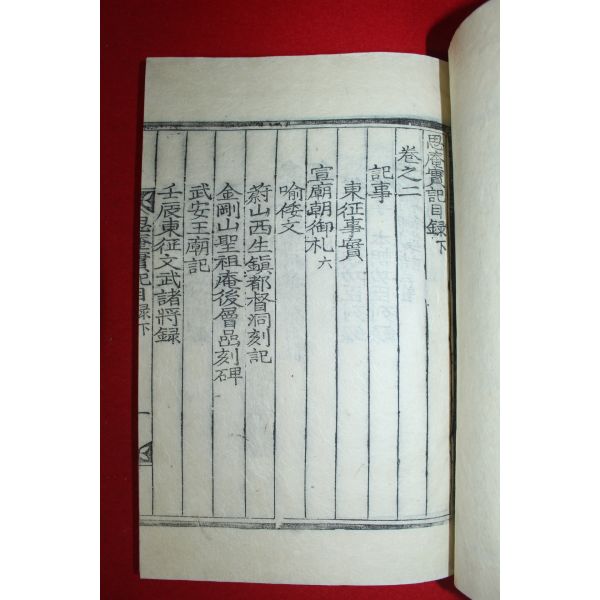 思庵實記目録下
卷之二
記事
東征事實
宣廟朝御札六
喻倭文
蔚山西生鎮都督洞刻記
金剛山聖祖庵後層嵒刻碑
武安王廟記
壬辰東征文武諸將録
思庵實記目録下 一